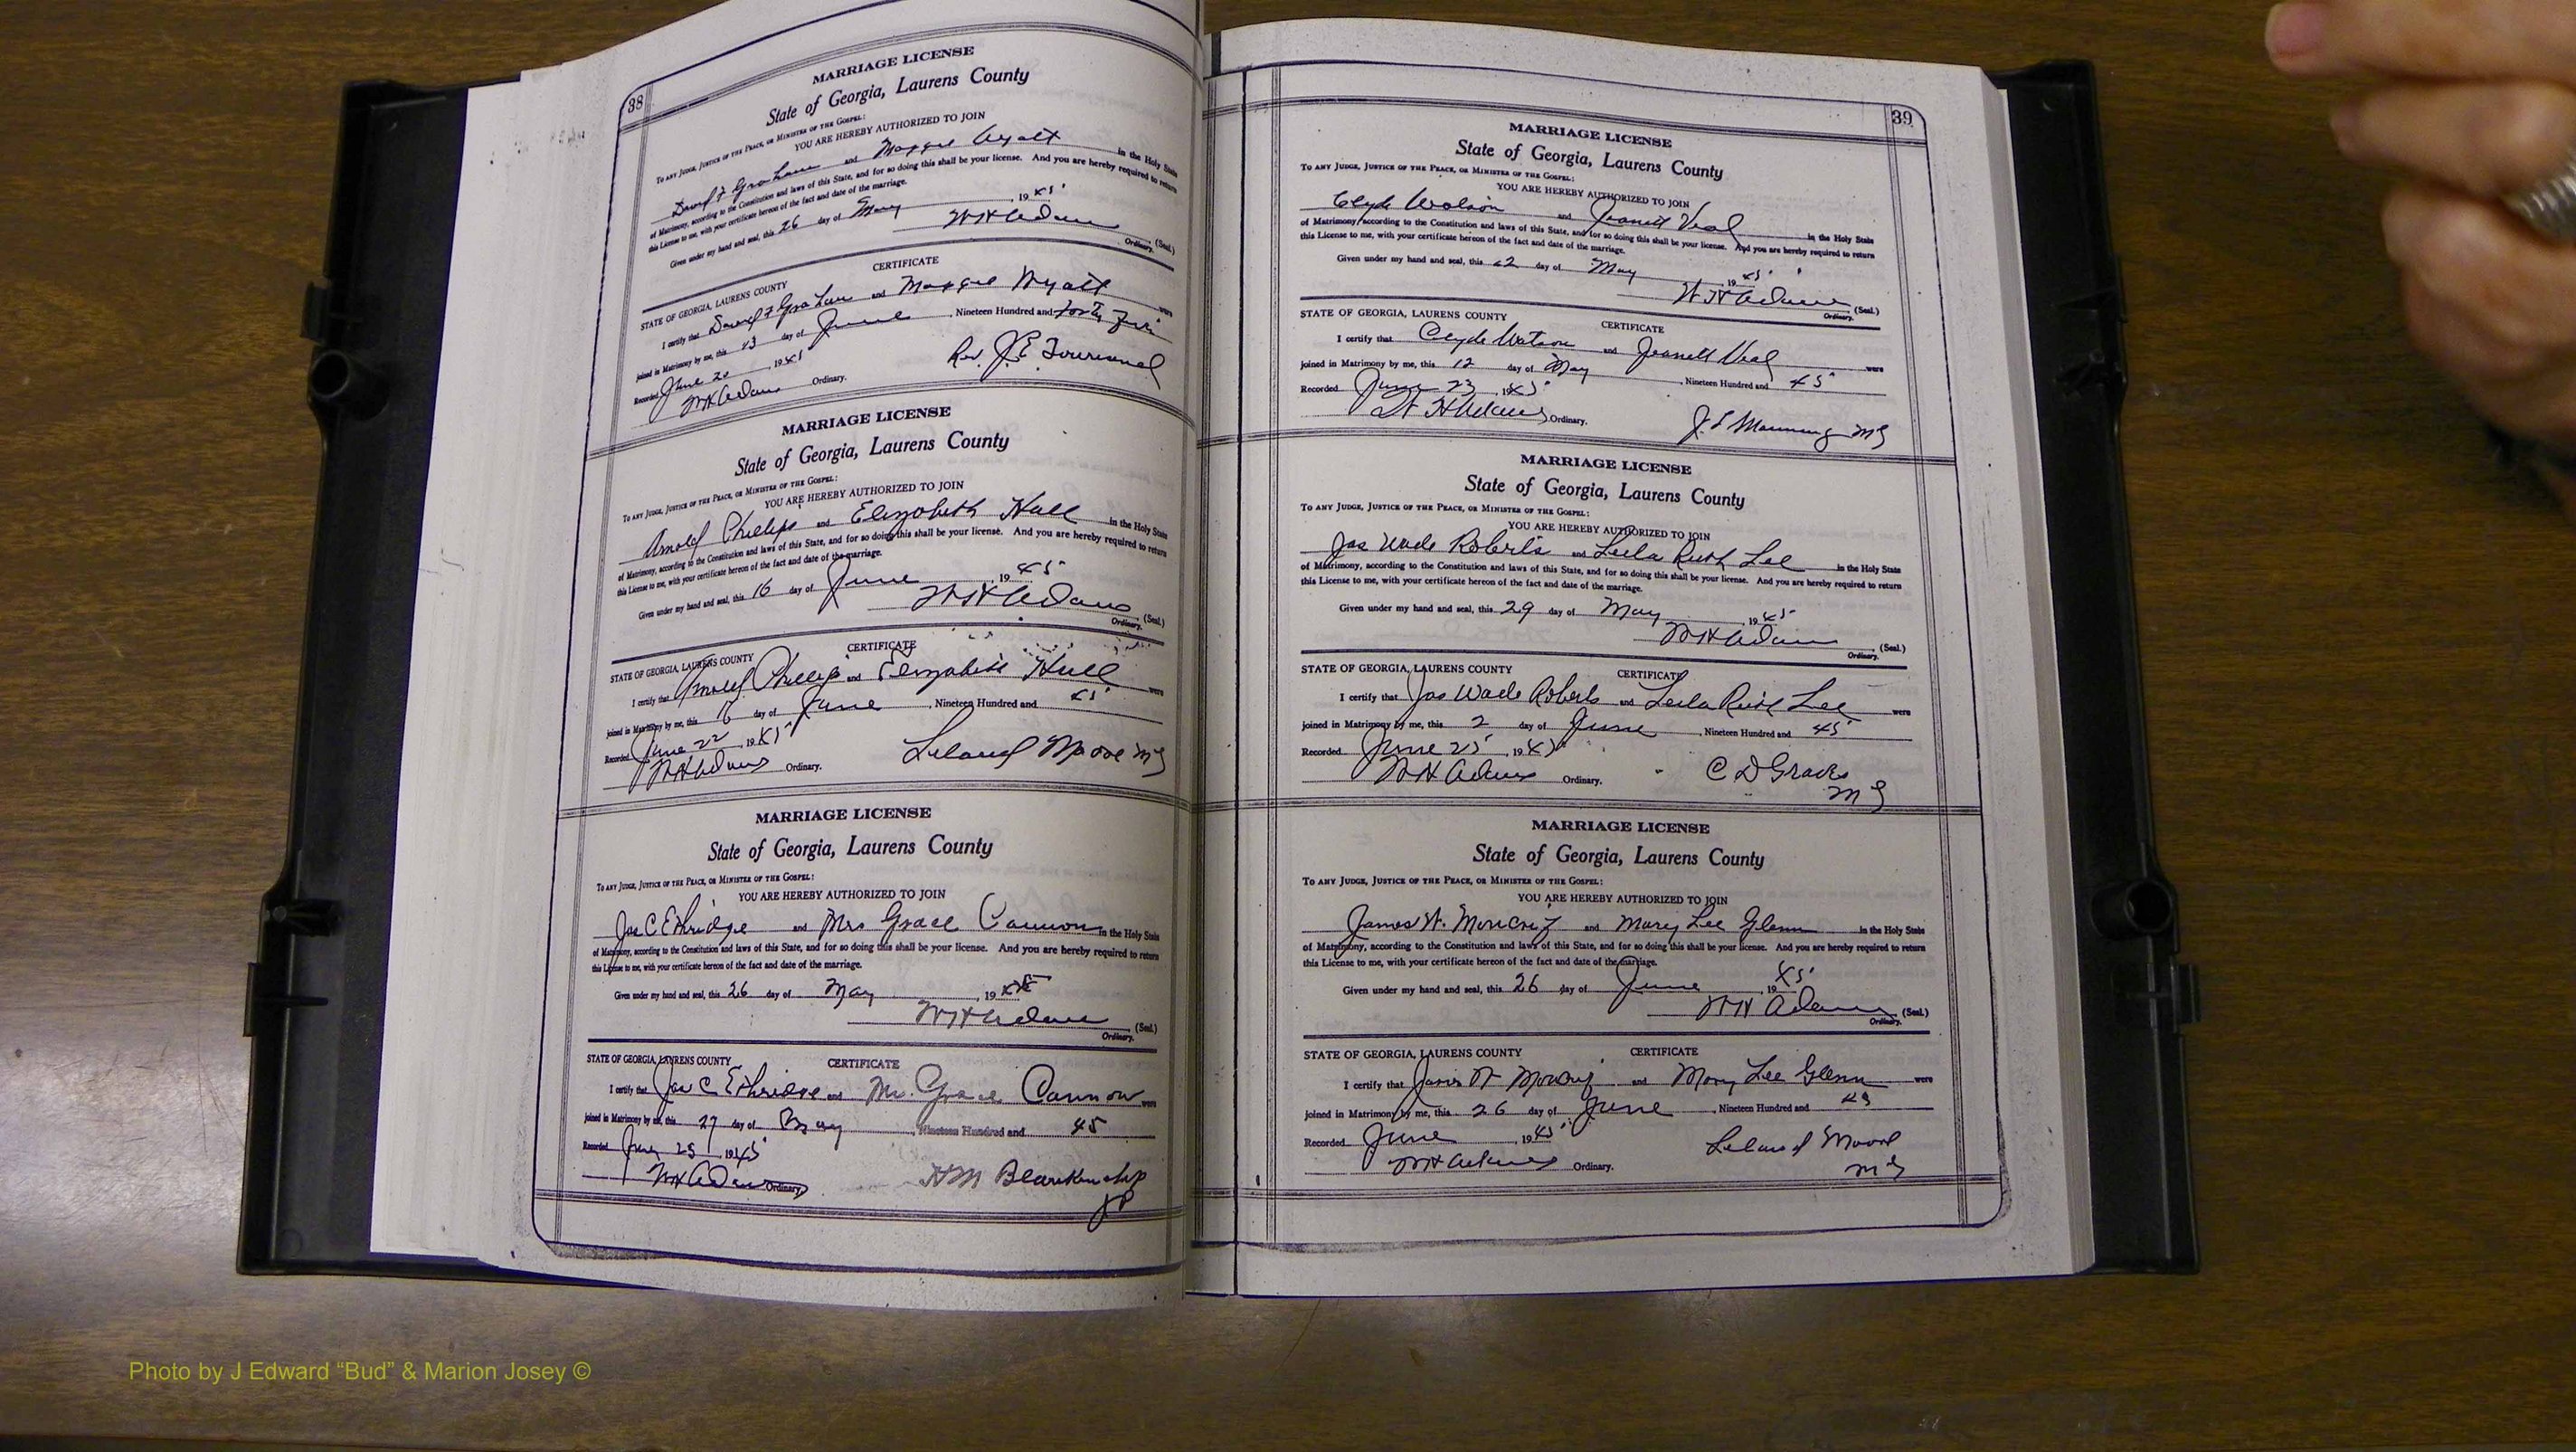 38
MARRIAGE LICENSE
State of Georgia, Laurens County
TO ANY JUDGE, JUSTICE OF THE PEACE, OR MINISTER OF THE GOSPEL:
YOU ARE HEREBY AUTHORIZED TO JOIN
Graham and Maggie Wyatt in the Holy State
of Matrimony, according to the Constitution and laws of this State, and for so doing this shall be your license. And you are hereby required to return
this License to me, with your certificate hereon of the fact and date of the marriage.
Given under my hand and seal, this 26 day of May, 1945
W H Adams (Seal.)
Ordinary.
CERTIFICATE
STATE OF GEORGIA, LAURENS COUNTY
I certify that Graham and Maggie Wyatt were
joined in Matrimony by me, this day of June, Nineteen Hundred and forty five
Recorded June 20, 1945
Rev. J. E. Townsend
W H Adams Ordinary.
MARRIAGE LICENSE
State of Georgia, Laurens County
TO ANY JUDGE, JUSTICE OF THE PEACE, OR MINISTER OF THE GOSPEL:
YOU ARE HEREBY AUTHORIZED TO JOIN
Arnold Phillips and Elizabeth Hall in the Holy State
of Matrimony, according to the Constitution and laws of this State, and for so doing this shall be your license. And you are hereby required to return
this License to me, with your certificate hereon of the fact and date of the marriage.
Given under my hand and seal, this 16 day of June, 1945
W H Adams (Seal.)
Ordinary.
CERTIFICATE
STATE OF GEORGIA, LAURENS COUNTY
I certify that Arnold Phillips and Elizabeth Hall were
joined in Matrimony by me, this 16 day of June, Nineteen Hundred and 45
Recorded June 22, 1945
Leland Moore MG
W H Adams Ordinary.
MARRIAGE LICENSE
State of Georgia, Laurens County
TO ANY JUDGE, JUSTICE OF THE PEACE, OR MINISTER OF THE GOSPEL:
YOU ARE HEREBY AUTHORIZED TO JOIN
Jas C Ethridge and Mrs Grace Cannon in the Holy State
of Matrimony, according to the Constitution and laws of this State, and for so doing this shall be your license. And you are hereby required to return
this License to me, with your certificate hereon of the fact and date of the marriage.
Given under my hand and seal, this 26 day of May, 19
W H Adams (Seal.)
Ordinary.
STATE OF GEORGIA, LAURENS COUNTY CERTIFICATE
I certify that Jas C Ethridge and Mrs. Grace Cannon were
joined in Matrimony by me, this 27 day of May, Nineteen Hundred and 45
Recorded 1945
W H Adams Ordinary.
H M Blankenship
JP
39
MARRIAGE LICENSE
State of Georgia, Laurens County
TO ANY JUDGE, JUSTICE OF THE PEACE, OR MINISTER OF THE GOSPEL:
YOU ARE HEREBY AUTHORIZED TO JOIN
Clyde Watson and Jeanett Veal in the Holy State
of Matrimony, according to the Constitution and laws of this State, and for so doing this shall be your license. And you are hereby required to return
this License to me, with your certificate hereon of the fact and date of the marriage.
Given under my hand and seal, this 12 day of May, 1945
W H Adams (Seal.)
Ordinary.
STATE OF GEORGIA, LAURENS COUNTY CERTIFICATE
I certify that Clyde Watson and Jeanett Veal were
joined in Matrimony by me, this 12 day of May, Nineteen Hundred and 45
Recorded June 23, 1945
W H Adams Ordinary.
Manning MG
MARRIAGE LICENSE
State of Georgia, Laurens County
TO ANY JUDGE, JUSTICE OF THE PEACE, OR MINISTER OF THE GOSPEL:
YOU ARE HEREBY AUTHORIZED TO JOIN
Jas Wade Roberts and Leila Ruth Lee in the Holy State
of Matrimony, according to the Constitution and laws of this State, and for so doing this shall be your license. And you are hereby required to return
this License to me, with your certificate hereon of the fact and date of the marriage.
Given under my hand and seal, this 29 day of May, 1945
W H Adams (Seal.)
Ordinary.
STATE OF GEORGIA, LAURENS COUNTY CERTIFICATE
I certify that Jas Wade Roberts and Leila Ruth Lee were
joined in Matrimony by me, this 2 day of June, Nineteen Hundred and 45
Recorded June 25, 1945
W H Adams Ordinary.
C D Graves
MG
MARRIAGE LICENSE
State of Georgia, Laurens County
TO ANY JUDGE, JUSTICE OF THE PEACE, OR MINISTER OF THE GOSPEL:
YOU ARE HEREBY AUTHORIZED TO JOIN
James W. Moncrif and Mary Lee Glenn in the Holy State
of Matrimony, according to the Constitution and laws of this State, and for so doing this shall be your license. And you are hereby required to return
this License to me, with your certificate hereon of the fact and date of the marriage.
Given under my hand and seal, this 26 day of June, 1945
W H Adams (Seal.)
Ordinary.
STATE OF GEORGIA, LAURENS COUNTY CERTIFICATE
I certify that James W and Mary Lee Glenn were
joined in Matrimony by me, this 26 day of June, Nineteen Hundred and 45
Recorded June, 1945
W H Adams Ordinary.
Leland Moore
MG
Photo by J Edward “Bud” & Marion Josey ©